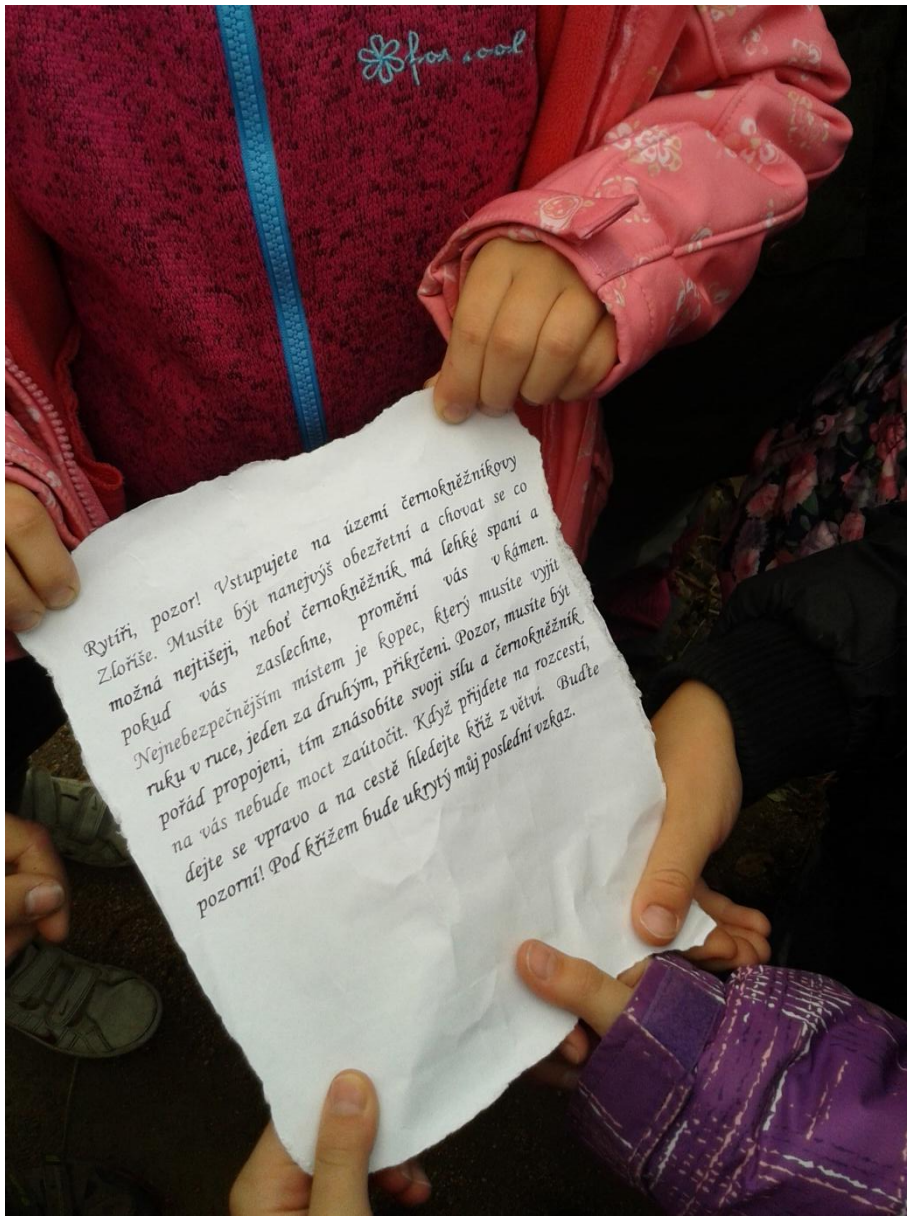 for cool
Rytíři, pozor! Vstupujete na území černokněžníkovy
Zloříše. Musíte být nanejvýš obezřetní a chovat se co
možná nejtišeji, neboť černokněžník má lehké spaní a
pokud vás zaslechne, promění vás v kámen.
Nejnebezpečnějším místem je kopec, který musíte vyjít
ruku v ruce, jeden za druhým, přikrčeni. Pozor, musíte být
pořád propojeni, tím znásobíte svoji sílu a černokněžník
na vás nebude moct zaútočit. Když přijdete na rozcestí,
dejte se vpravo a na cestě hledejte kříž z větví. Buďte
pozorní! Pod křížem bude ukrytý můj poslední vzkaz.